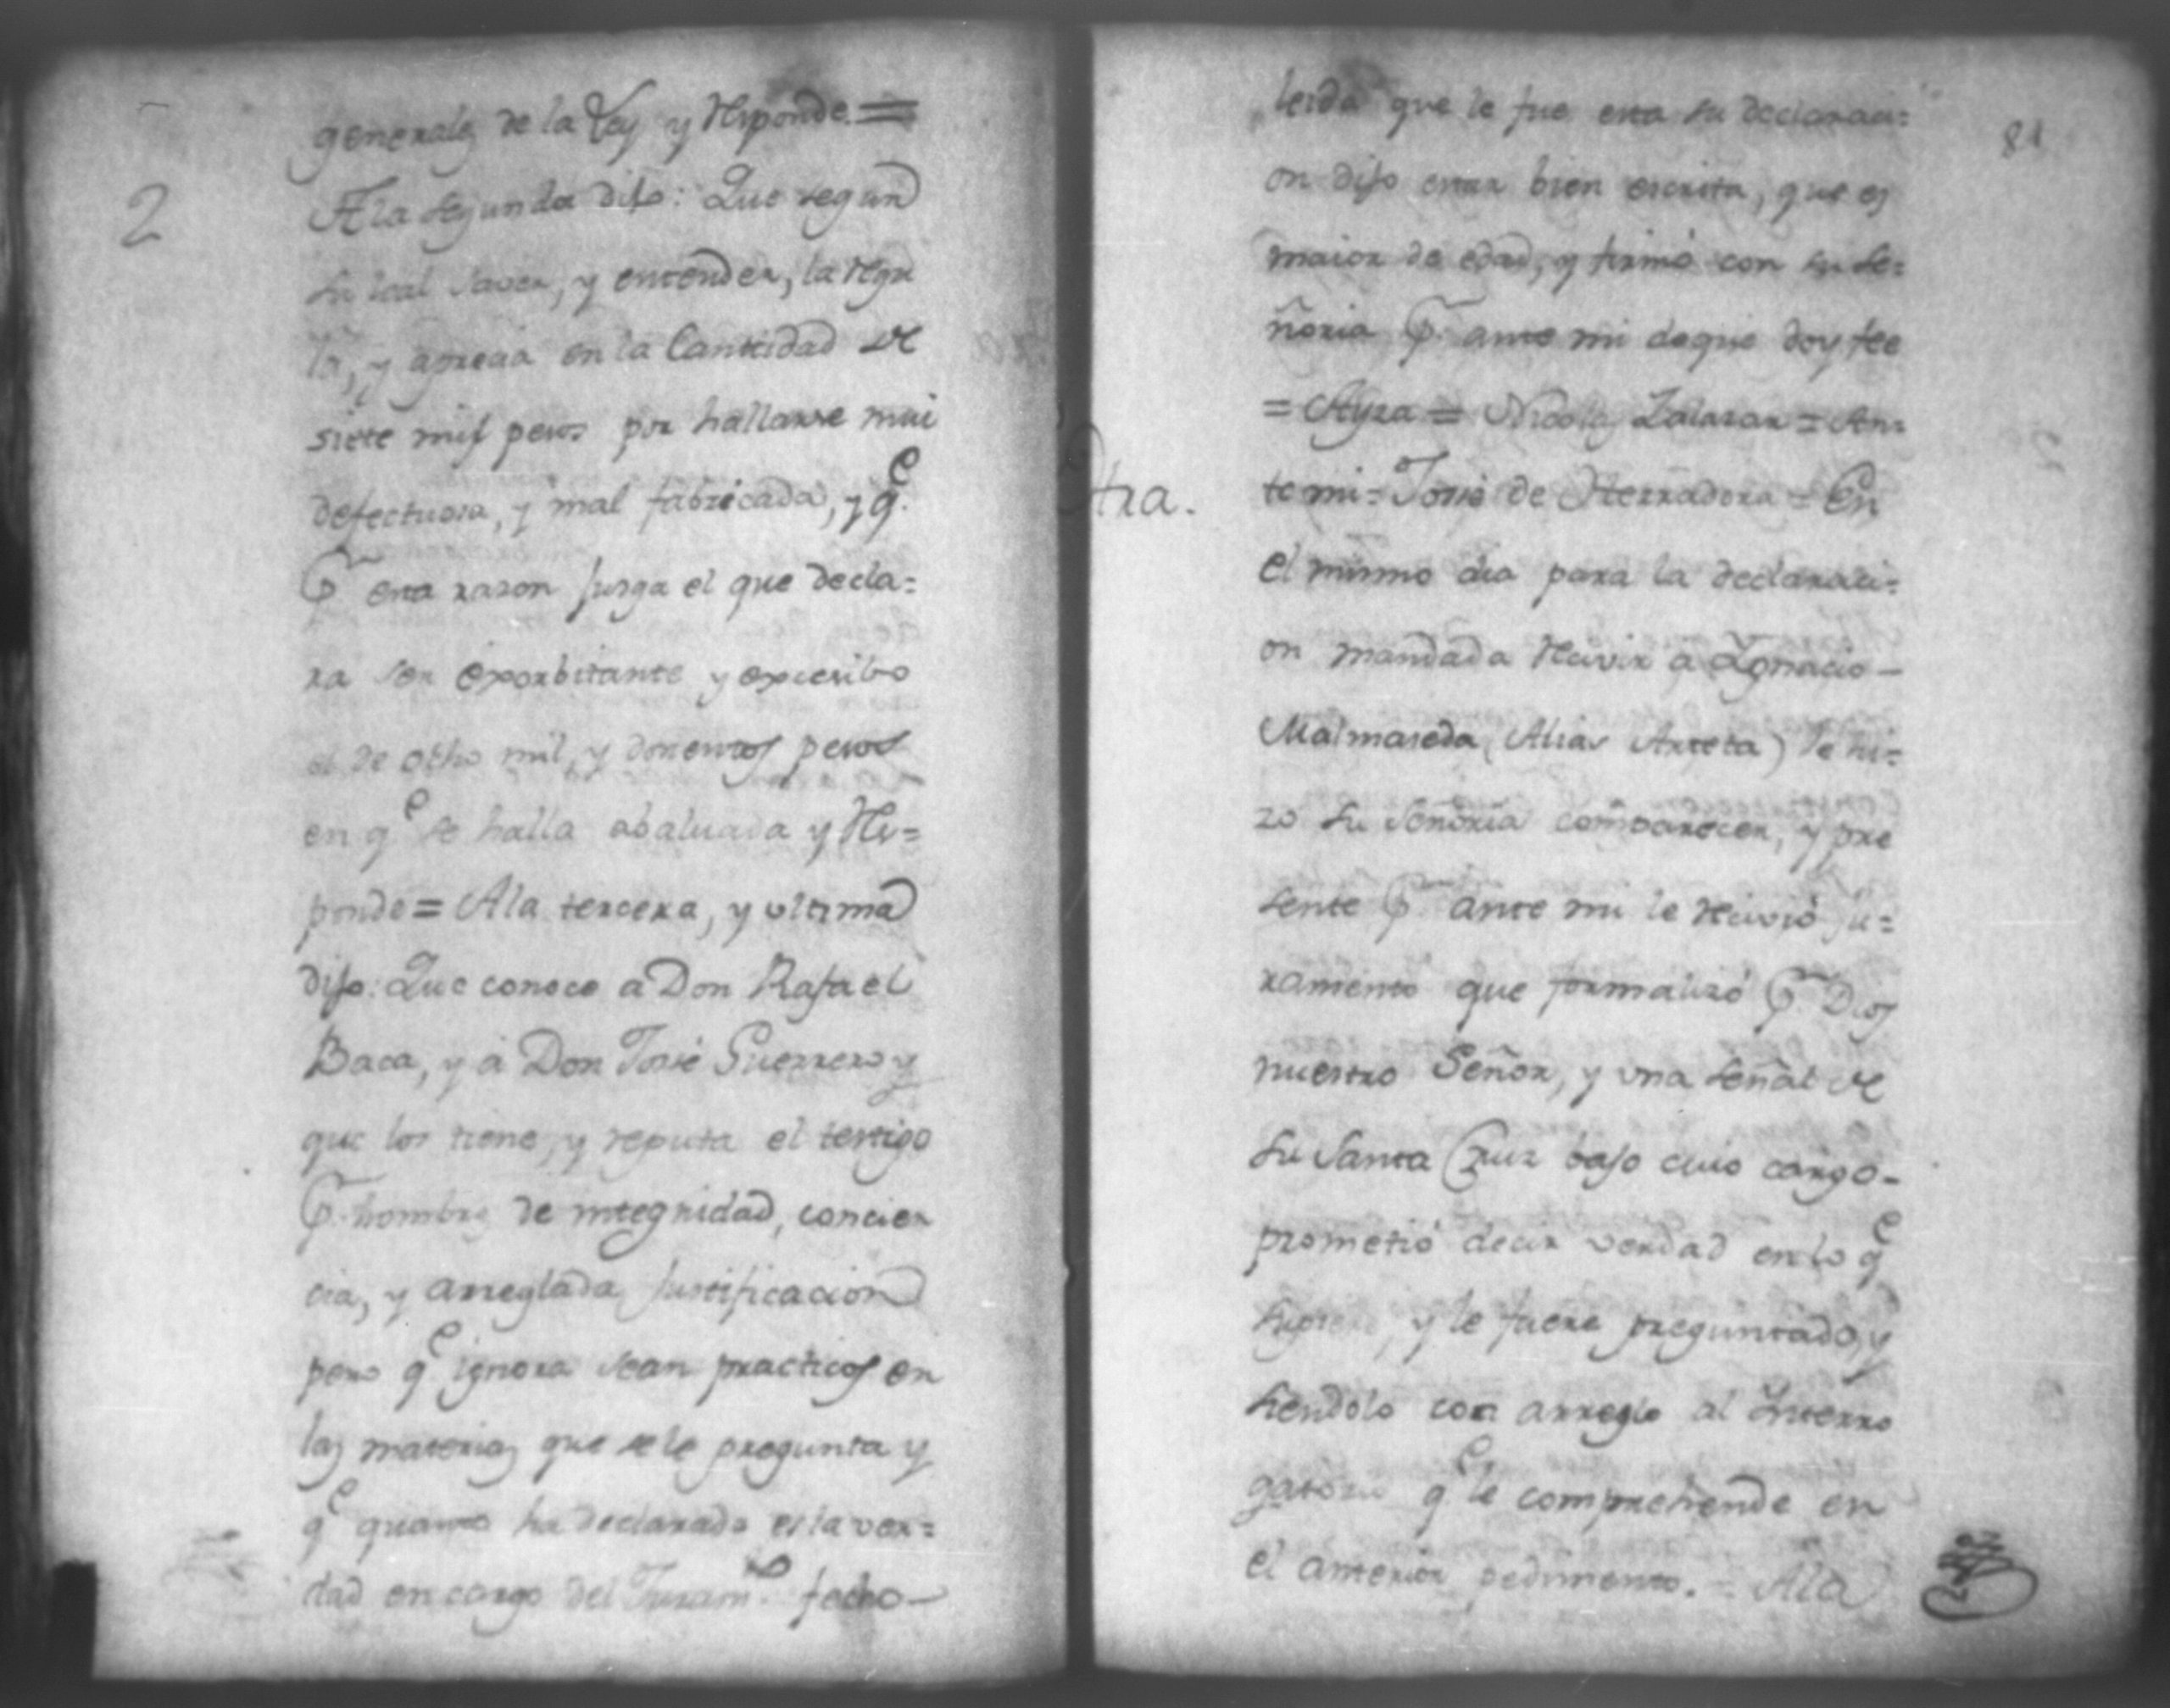 2
generales de la Ley y responde =
A la segunda dijo: Que segun
su leal saver, y entender, la regu
la, y aprecia en la Cantidad de
siete mil pesos por hallarse mui
defectuosa, y mal fabricada, y q.e
Pr esta razon jusga el que decla=
ra ser exorbitante y excesibo
el de ocho mil, y doscientos pesos
en q.e se halla abaluada y res=
ponde = A la tercera, y ultima
dijo: Que conoce a Don Rafael
Baca, y á Don José Guerrero y
que los tiene, y reputa el testigo
Pr hombres de integridad, concien
cia, y arreglada justificacion
pero q.e ignora sean practicos en
las materias que se le pregunta y
q.e quanto ha declarado es la ver=
dad en cargo del Juram.to fecho
81
leida que le fue esta su declaraci=
on dijo estar bien escrita, que es
maior de edad, y firmó con su Se=
ñoria Pr ante mi de que doy fee
= Ayza = Nicolas Zalazar = An=
te mi = José de Herradora = En
Otra.
el mismo dia para la declaraci=
on mandada recivir a Ygnacio
Malmaseda, (Alias Arteta) le hi=
zo su Señoria comparecer, y pre
sente Pr ante mi le recivió ju=
ramento que formalizó Pr Dios
nuestro Señor, y una señal de
su Santa Cruz bajo cuio cargo
prometió decir verdad en lo q.e
supiere, y le fuere preguntado, y
siendolo con arreglo al Interro
gatorio q.e le comprehende en
el anterior pedimento. = A la